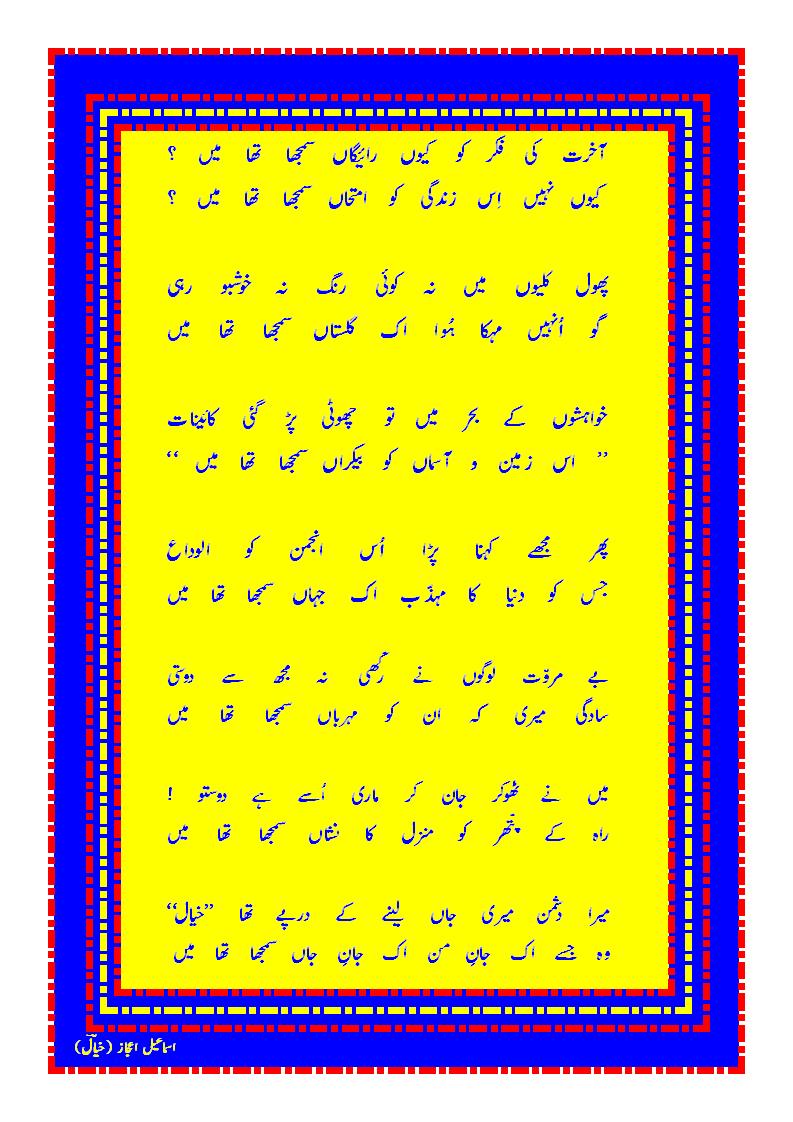 آخرت کی فکر کو کیوں رائیگاں سمجھا تھا میں ؟
کیوں نہیں اِس زندگی کو امتحاں سمجھا تھا میں ؟
پھول کلیوں میں نہ کوئی رنگ نہ خوشبو رہی
گو اُنہیں مہکا ہُوا اک گلستاں سمجھا تھا میں
خواہشوں کے بحر میں تو چھوٹی پڑ گئی کائینات
” اس زمین و آسماں کو بیکراں سمجھا تھا میں “
پھر مجھے کہنا پڑا اُس انجمن کو الوداع
جس کو دنیا کا مہذّب اک جہاں سمجھا تھا میں
بے مروّت لوگوں نے رکھی نہ مجھ سے دوستی
سادگی میری کہ ان کو مہرباں سمجھا تھا میں
میں نے ٹھوکر جان کر ماری اُسے ہے دوستو !
راہ کے پتّھر کو منزل کا نشاں سمجھا تھا میں
میرا دشمن میری جاں لینے کے درپے تھا ”خیال“
وہ جسے اک جانِ من اک جانِ جاں سمجھا تھا میں
اسماعیل اعجاز (خیالؔ)